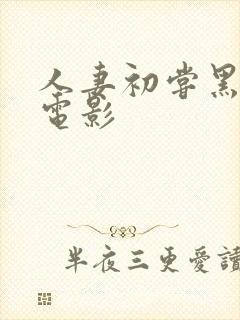 人妻初嘗黑
電影
半夜三更愛讀